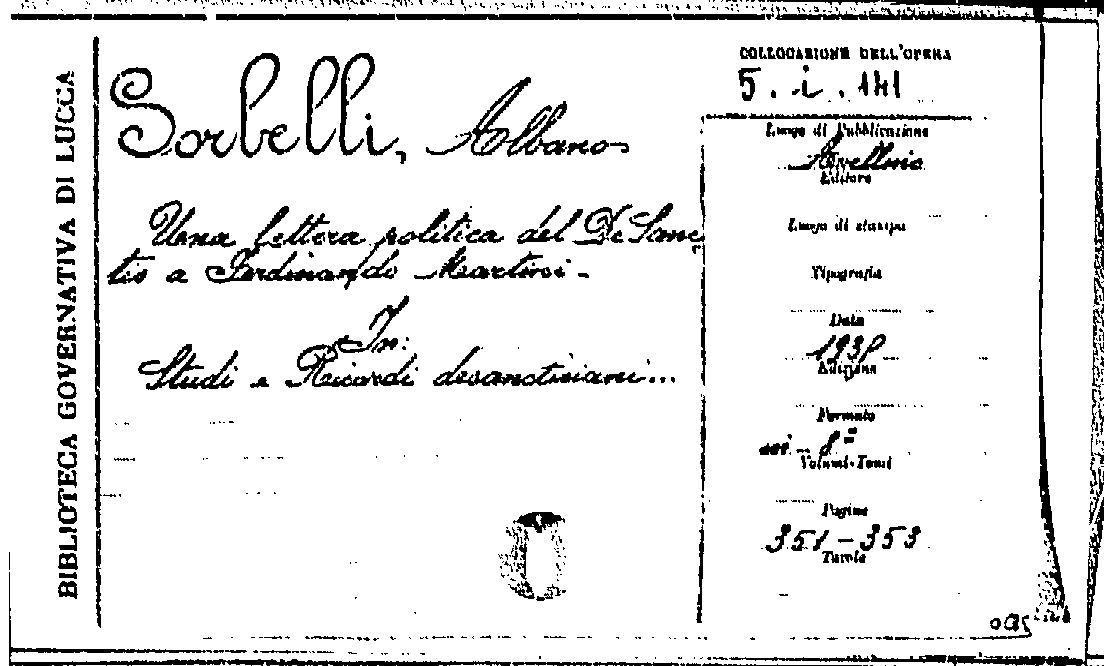 BIBLIOTECA GOVERNATIVA DI LUCCA
Sorbelli, Albano
Una lettera politica del De Sanc
tis a Ferdinando Martini -
In:
Studi e Ricordi desanctisiani...
COLLOCAZIONE DELL'OPERA
5. i. 141
Luogo di Pubblicazione
Avellino
Editore
Luogo di stampa
Tipografia
Data
193
Edizione
Formato
8º
Volumi-Tomi
Pagine
351-353
Tavole